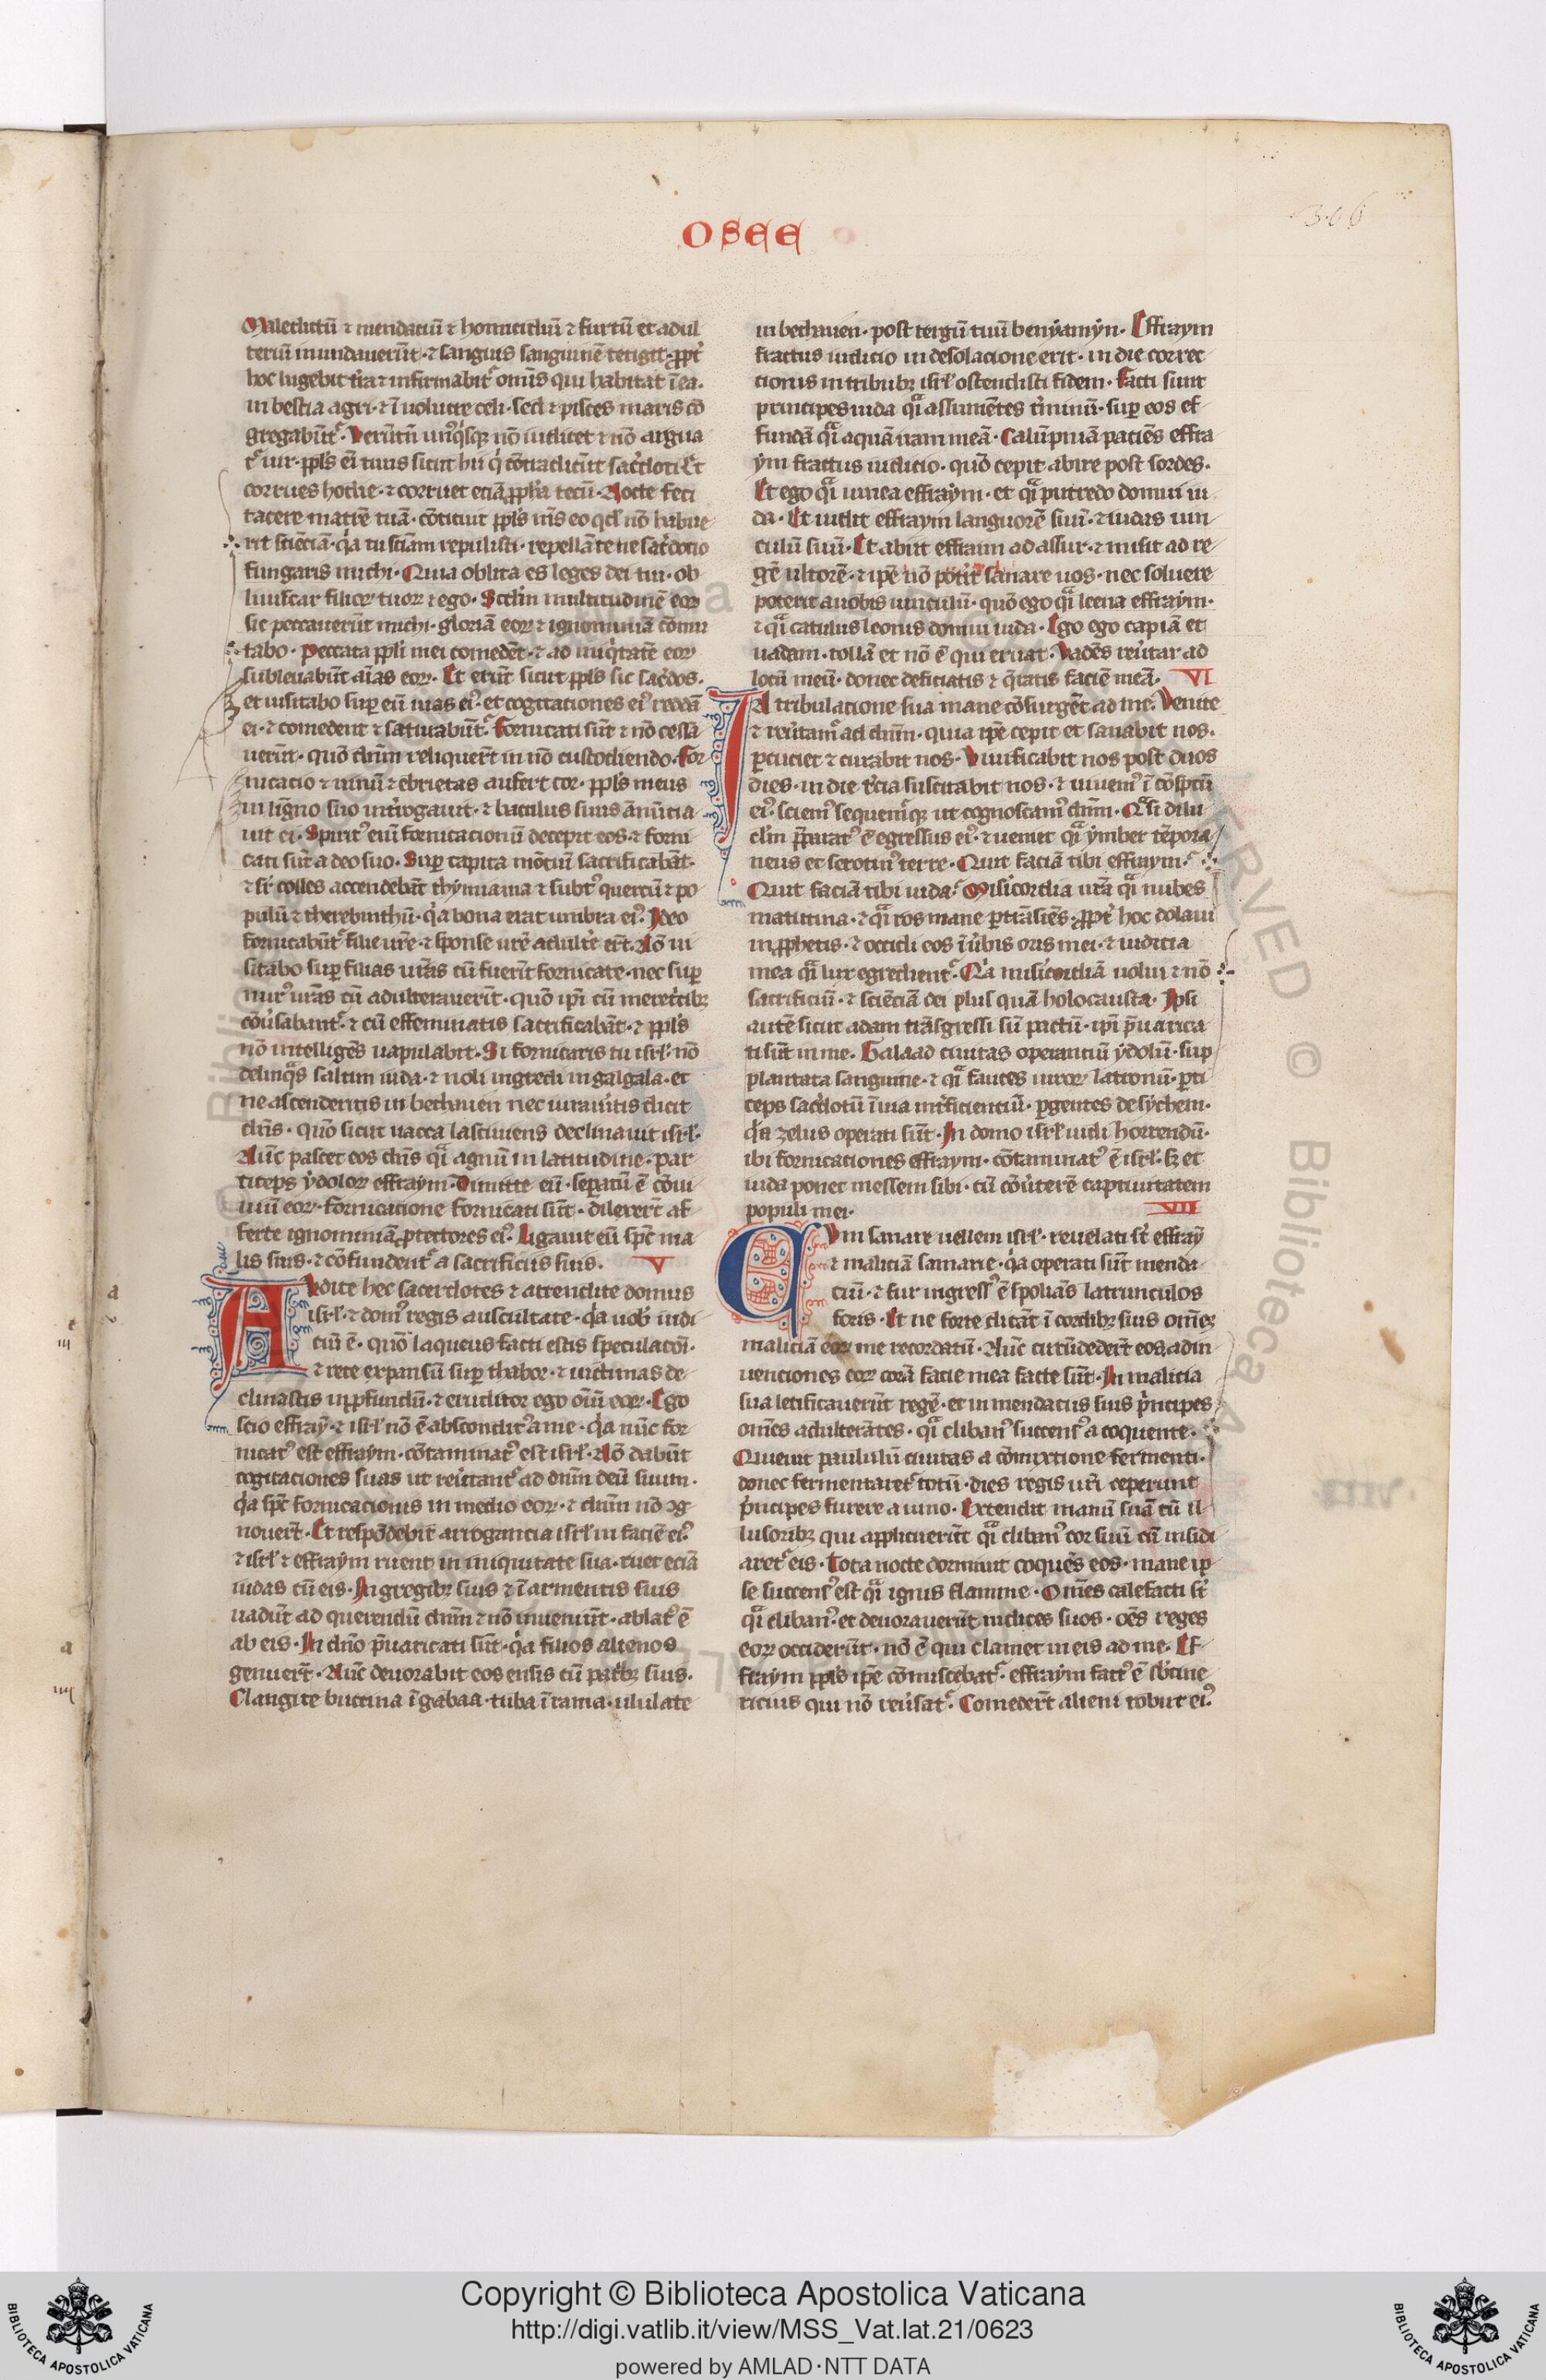 OSEE
306
Maledictū ⁊ mendaciū ⁊ homicidiū ⁊ furtū et adul
teriū inundauerūt · ⁊ sanguis sanguinē tetigit · ꝓpt̾
hoc lugebit t̾ra ⁊ infirmabit᷑ om̄is qui habitat ī ea ·
in bestia agri · ⁊ ī uolucre celi · sed ⁊ pisces maris cō
gregabūt᷑ · Verūtn̄ unꝰq̇sq; nō iudicet ⁊ nō argua
t᷑ uir · ppl̄s eī tuus sicut hii q̇ cōtradicūt sac̾doti Et
corrues hodie · ⁊ corruet eciā ꝓph̄a tecū · Nocte feci
tacere matrē tuā · cōticuit ppl̄s m̄s eo qd̾ nō habue
rit sciēciā · q̇a tu sciām repulisti · repellā te ne sac̾docio
fungaris michi · Quia oblita es leges dei tui · ob
liuiscar filioꝝ tuoꝝ ⁊ ego · Scdm̄ multitudinē eoꝝ
sic peccauerūt michi · gloriā eoꝝ ⁊ ignominiā cōmu
tabo · Peccata ppl̄i mei comedēt · ⁊ ad iniq̇tatē eoꝝ
subleuabūt aīas eoꝝ · Et erūt sicut ppl̄s sic sac̾dos ·
et uisitabo suꝑ eū uias eiꝰ · et cogitationes eiꝰ reddā
ei · ⁊ comedent ⁊ saturabūt᷑ · Fornicati sūt ⁊ nō cessa
uerūt · quō dn̄m reliquer̄t in nō custodiendo · For
nicacio ⁊ uinū ⁊ ebrietas aufert cor · ppl̄s meus
in ligno suo int̾rogauit · ⁊ baculus suus ānūcia
uit ei · Spiritꝰ eni fornicacionū decepit eos · ⁊ forni
cati sūt a deo suo · Suꝑ capita mōtiū sacrificabāt ·
⁊ sr̄ colles accendebāt thymiama ⁊ subtꝰ quercū ⁊ po
pulū ⁊ therebinthū · q̇a bona erat umbra eiꝰ · Ideo
fornicabūt᷑ filie ur̄e · ⁊ sponse ur̄e adult̾e er̄t · Nō ui
sitabo suꝑ filias ur̄as cū fuerīt fornicate · nec suꝑ
nurꝰ ur̄as cū adulterauerīt · quō ip̄i cū meret̾cib;
cōu̾sabant᷑ · ⁊ cū effeminatis sacrificabāt · ⁊ ppl̄s
nō intelligēs uapulabit · Si fornicaris tu isrl̾ · nō
delinq̄s saltim iuda · ⁊ noli ingredi in galgala · et
ne ascenderitis in bethauen nec iurau̾itis uiuit
dn̄s · quō sicut uacca lasciuiens declinauit isrl̾ ·
Nūc pascet eos dn̄s qͣi agnū in latitudine · par
ticeps ydoloꝝ effraym · Dimitte eū · seꝑatū ē cōui
uiū eoꝝ · fornicatione fornicati sūt · dilexer̄t af
ferre ignominiā ꝓtectores eiꝰ · Ligauit eū sp̄c in a
lis suis · ⁊ cōfundent᷑ a sacrificiis suis · V
Audite hec sacerdotes ⁊ attendite domus
isrl̾ · ⁊ domꝰ regis auscultate · q̇a uob̾ iudi
ciū ē · quō laqueus facti estis speculacōi ·
⁊ rete expansū suꝑ thabor · ⁊ uictimas de
clinastis in ꝓfundū · ⁊ eruditor ego oīū eoꝝ · Ego
scio effray̅ · ⁊ isrl̾ nō ē absconditꝰ a me · q̇a nūc for
nicatꝰ est effraym · cōtaminatꝰ est isrl̾ · Nō dabūt
cogitaciones suas ut reu̾tant᷑ ad dn̄m deū suum ·
q̇a sp̄c fornicacionis in medio eoꝝ · ⁊ dn̄m nō ꝯg
nouer̄t · Et respōdebit᷑ arrogancia isrl̾ in faciē eiꝰ
⁊ isrl̾ ⁊ effraym ruent in iniquitate sua · ruet eciā
iudas cū eis · In gregib; suis ⁊ ī armentis suis
uadūt ad querendū dn̄m ⁊ nō inueniūt · ablatꝰ ē
ab eis · In dn̄o p̄uaricati sūt · q̇a filios alienos
genuer̄t · Nūc deuorabit eos ensis cū partib; suis ·
Clangite buccina ī gabaa · tuba ī rama · ululate
in bethauen · post tergū tuū benyamyn · Effraym
fractus iudicio in desolacione erit · in die correc
tionis in tribub; isrl̾ ostendisti fidem · Facti sunt
principes iuda qͣi assumētes t̾minū · suꝑ eos ef
fundā qͣi aquā iram meā · Calūpniā paciēs effra
ym fractus iudicio · quō cepit abire post sordes ·
Et ego qͣi tinea effraym · et qͣi putredo domui iu
da · Et uidit effraym languorē suū · ⁊ iudas uin
culū suū · Et abiit effraim ad assur · ⁊ misit ad re
gē ultorē · ⁊ ip̄e nō pot̾it sanare uos · nec soluere
poterit a uobis uinculū · quō ego qͣi leena effraym ·
⁊ qͣi catulus leonis domui iuda · Ego ego capiā et
uadam · tollā et nō ē qui eruat · Vadēs reu̾tar ad
locū meū · donec deficiatis ⁊ q̄ratis faciē meā · VI
In tribulacione sua mane cōsurgēt ad me · Venite
⁊ reu̾tam᷑ ad dn̄m · quia ip̄e cepit et sanabit nos ·
ꝑcuciet ⁊ curabit nos · Viuificabit nos post duos
dies · in die t̾cia suscitabit nos · ⁊ uiuemꝰ ī cōspctū
eiꝰ · sciemꝰ sequemꝰq; ut cognoscamꝰ dn̄m · Qͣsi dilu
clm̄ p̄paratꝰ ē egressus eiꝰ · ⁊ ueniet qͣi ymber tēpora
neus et serotinꝰ terre · Quit faciā tibi effraym ·
Quit faciā tibi iuda · Misicordia ur̄a qͣi nubes
matutina · ⁊ qͣi ros mane ꝑtrāsiēs · ꝓpt̾ hoc dolaui
in ꝓphetis · ⁊ occidi eos ī u̾bis oris mei · ⁊ iudicia
mea qͣi lux egredient᷑ · Q̇a misicordiā uolui ⁊ nō
sacrificiū · ⁊ sciēciā dei plus quā holocausta · Ipsi
autē sicut adam trāsgressi sūt pactū · ip̄i p̄uarica
ti sūt in me · Galaad ciuitas operantiū ydolū · sup
plantata sanguine · ⁊ qͣi fauces uiroꝝ latronū · ꝑti
ceps sac̾dotū ī uia int̾ficientiū · ꝑgentes de sychem ·
q̇a zelus operati sūt · In domo isrl̾ uidi horrendū ·
ibi fornicationes effraym · cōtaminatꝰ ē isrl̾ · sꝫ et
iuda ponet messem sibi · cū cōu̾terē captiuitatem
populi mei · VII
Cum sanare uellem isrl̾ · reuelati sr̄ effray̅
⁊ maliciā samarie · q̇a operati sūt menda
ciū · ⁊ fur ingressꝰ ē spoliās latrunculos
foris · Et ne forte dicāt ī cordib; suis om̄es
maliciā eoꝝ me recordatū · Nūc circūdeder̄t eos adin
uenciones eoꝝ corā facie mea facte sūt · In malicia
sua letificauerūt regē · et in mendaciis suis p̾ncipes
om̄es adulterātes · qͣi clibanꝰ succensꝰ a coquente ·
Quieuit paululū ciuitas a cōmixtione fermenti ·
donec fermentaret᷑ totū · dies regis nr̄i ceperunt
p̾ncipes furere a uino · Extendit manū suā cū il
lusorib; qui applicuerūt qͣi clibanꝰ cor suū cū insidi
aret᷑ eis · Tota nocte dormiuit coquēs eos · mane ip
se succensꝰ est qͣi ignis flamme · Om̄es calefacti sr̄
qͣi clibanꝰ · et deuorauerūt iudices suos · oēs reges
eoꝝ occiderūt · nō ē qui clamet in eis ad me · Ef
fraym ppl̄s ip̄e cōmiscebat᷑ · effraym factꝰ ē sb̾cine
ricius qui nō reu̾sat᷑ · Comeder̄t alieni robur eiꝰ
BIBLIOTECA APOSTOLICA VATICANA
Copyright © Biblioteca Apostolica Vaticana
http://digi.vatlib.it/view/MSS_Vat.lat.21/0623
powered by AMLAD · NTT DATA
BIBLIOTECA APOSTOLICA VATICANA